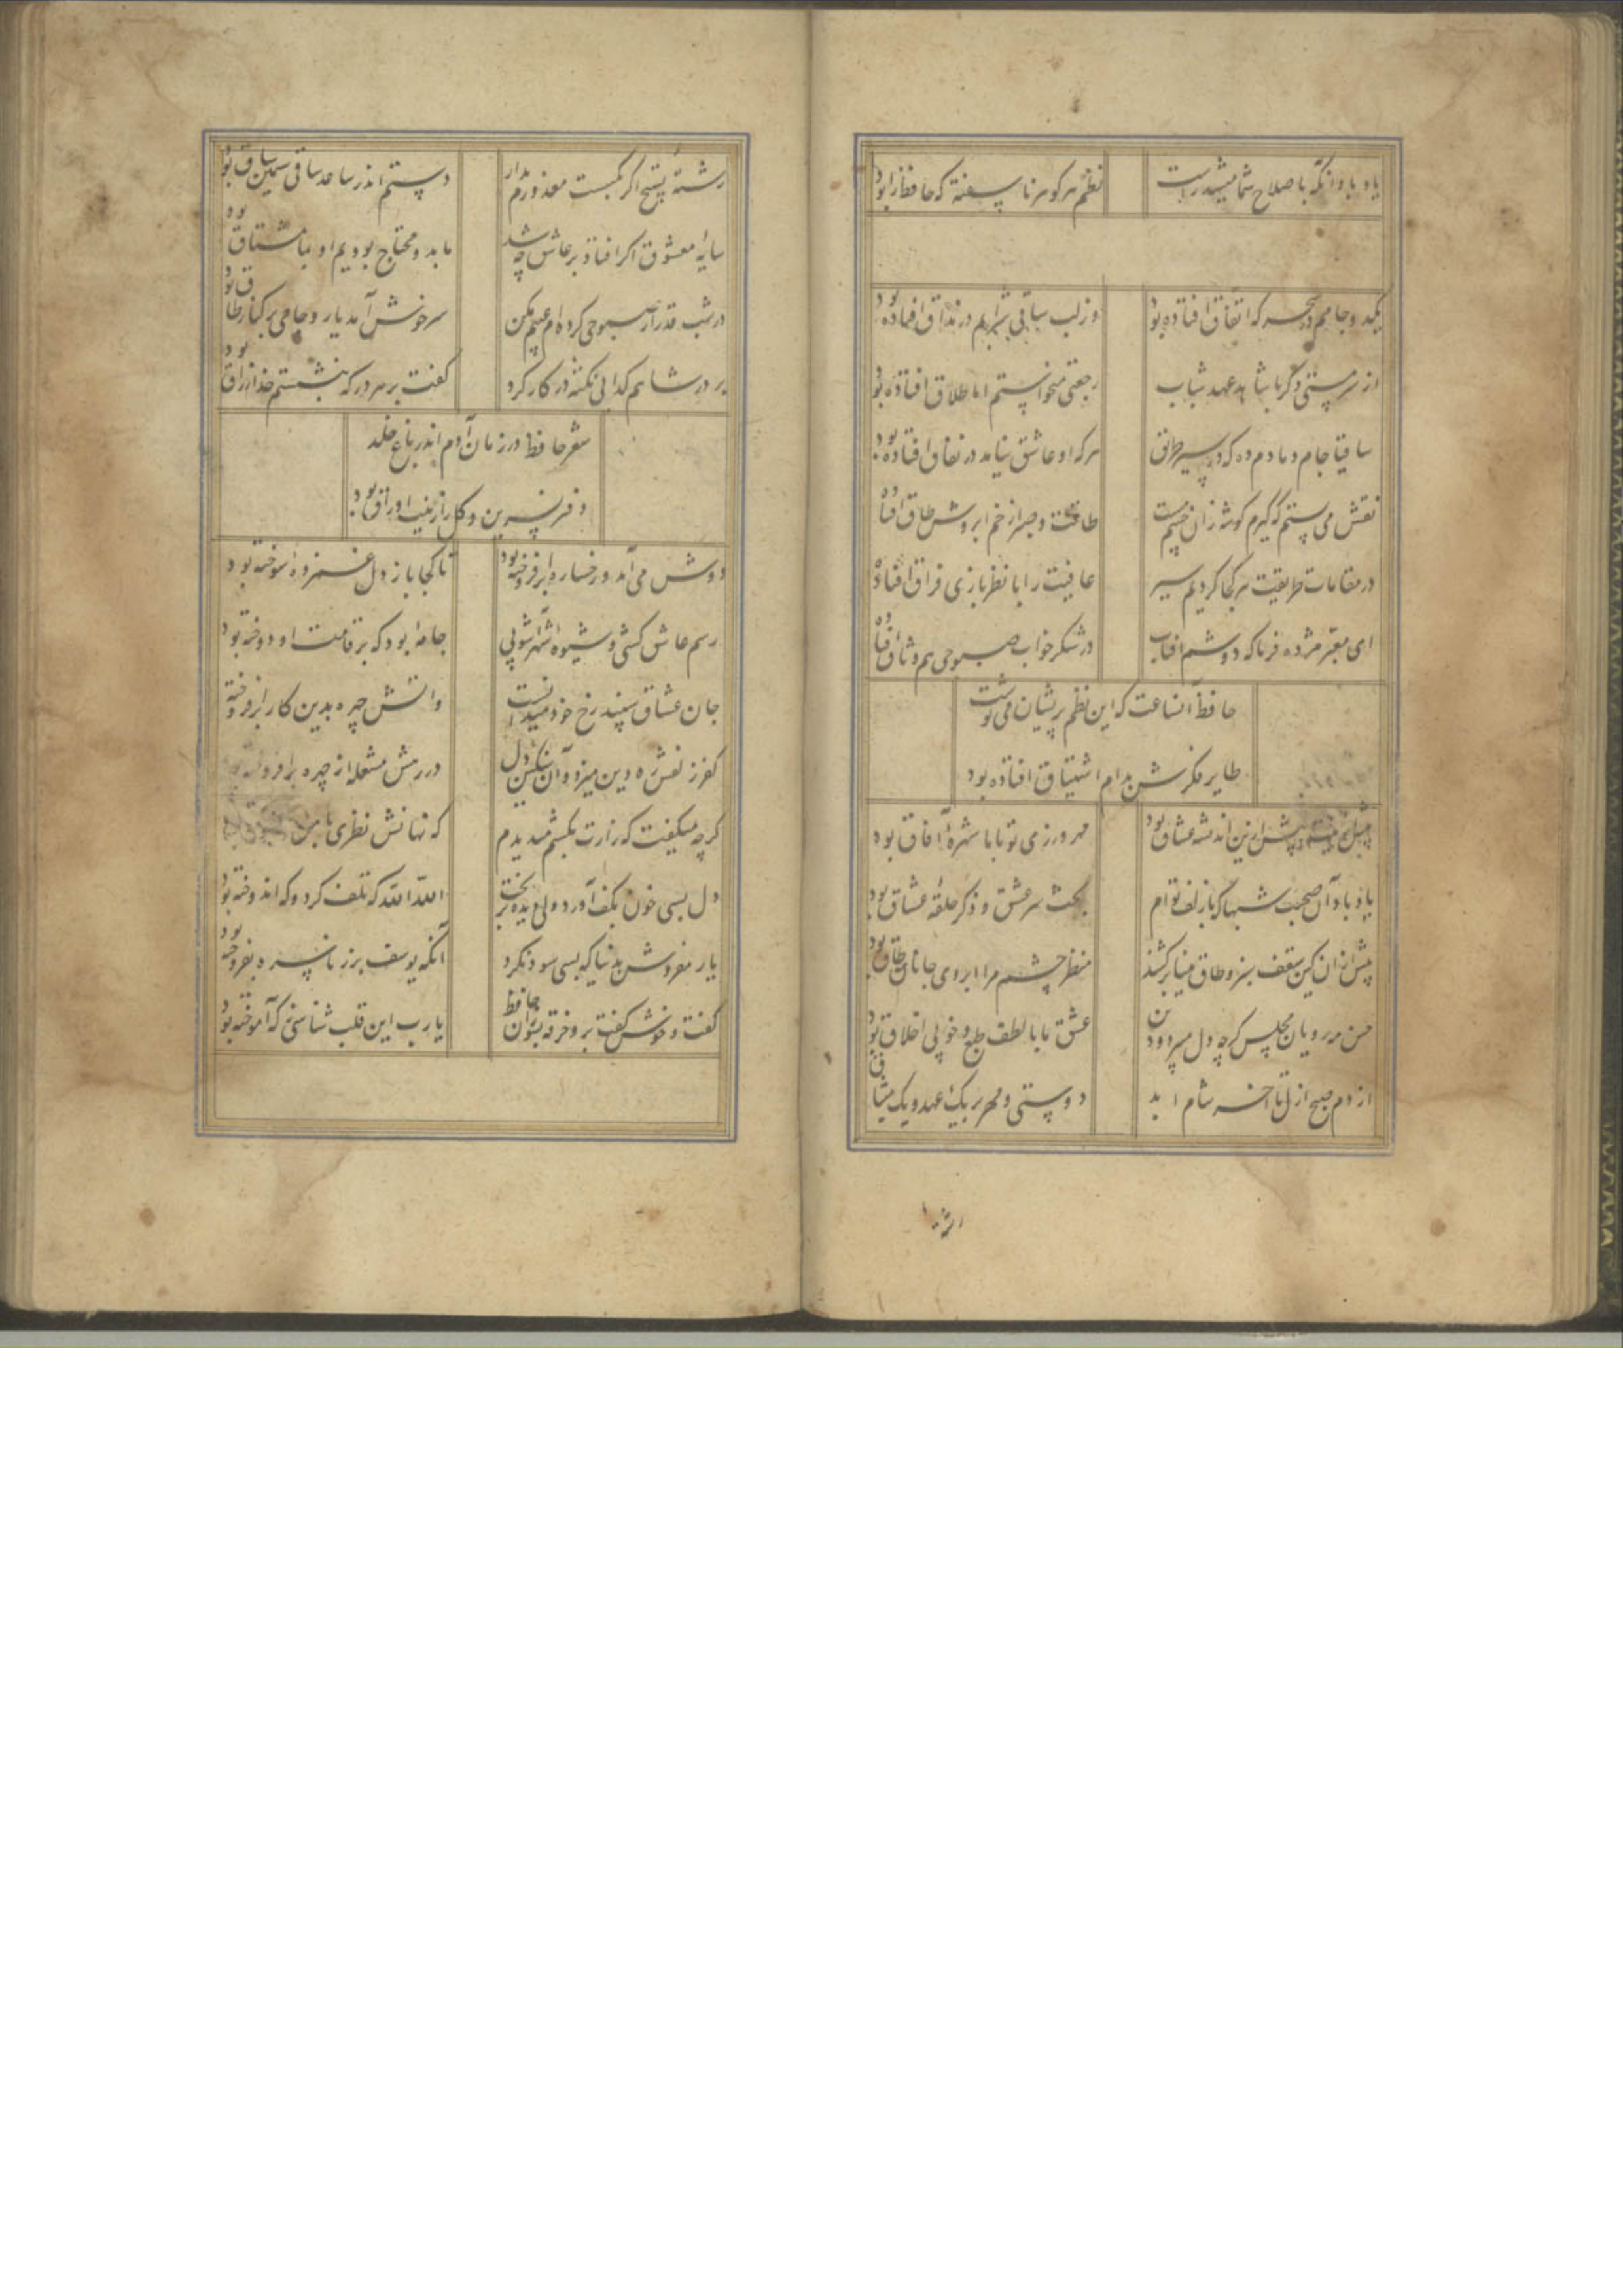 یاد باد آنکه باصلاح شما میشد راست
نظم هر گوهر ناسفته که حافظ را بود
یکدو جامم دی سحرگه اتفاق افتاده بود
وز لب ساقی شرابم در مذاق افتاده بود
از سر مستی دگر با شاهد عهد شباب
رجعتی میخواستم اما طلاق افتاده بود
ساقیا جام دمادم ده که در سیر طریق
هرکه او عاشق نیامد در نفاق افتاده بود
نقش می بستم که گیرم گوشه زان چشم مست
طاقت و صبر از خم ابروش طاق افتاده
در مقامات طریقت هر کجا کردیم سیر
عافیت را با نظر بازی فراق افتاده
ای معبر مژده فرما که دوشم افتاب
در شکر خواب صبوحی هم وثاق افتاده
حافظ آنساعت که این نظم پریشان می نوشت
طایر فکرش بدام اشتیاق افتاده بود
پیش ازین اندیشه عشاق بود
مهرورزی تو با ما شهرهٔ آفاق بود
یاد باد آن صحبت شبها که با زلف توام
بحث سر عشق و ذکر حلقهٔ عشاق بود
پیش ازان کین سقف سبز و طاق مینا برکشند
منظر چشم مرا ابروی جانان طاق بود
حسن مه رویان مجلس گرچه دل میبرد و دین
عشق ما با لطف طبع و خوبی اخلاق بود
از دم صبح ازل تا آخر شام ابد
دوستی و مهر بر یک عهد و یک میثاق
رشتهٔ تسبیح اگر بگسست معذورم بدار
دستم اندر ساعد ساقی سیمین ساق بود
سایهٔ معشوق اگر افتاد بر عاشق چه شد
ما بدو محتاج بودیم او بما مشتاق بود
در شب قدر ار صبوحی کرده ام عیبم مکن
سرخوش آمد یار و جامی بر کنار طاق بود
بر در شاهم گدائی نکته در کار کرد
گفت بر هر در که بنشستم خدا رزاق بود
شعر حافظ در زمان آدم اندر باغ خلد
دفتر نسرین و گل را زینت اوراق بود
دوش می آمد و رخساره برافروخته بود
تا کجا باز دل غمزده سوخته بود
رسم عاشق کشی و شیوه شهرآشوبی
جامهٔ بود که بر قامت او دوخته بود
جان عشاق سپند رخ خود میدانست
واتش چهره بدین کار برافروخته
کفر زلفش ره دین میزد و آن سنگین دل
در رهش مشعله از چهره برافروخته بود
گرچه میگفت که زارت بکشم میدیدم
که نهانش نظری با من
دل بسی خون بکف آورد ولی دیده بریخت
الله الله که تلف کرد و که اندوخته بود
یار مفروش بدنیا که بسی سود نکرد
آنکه یوسف بزر ناسره بفروخته بود
گفت و خوش گفت برو خرقه بسوزان حافظ
یارب این قلب شناسی ز که آموخته بود
رشتهٔ